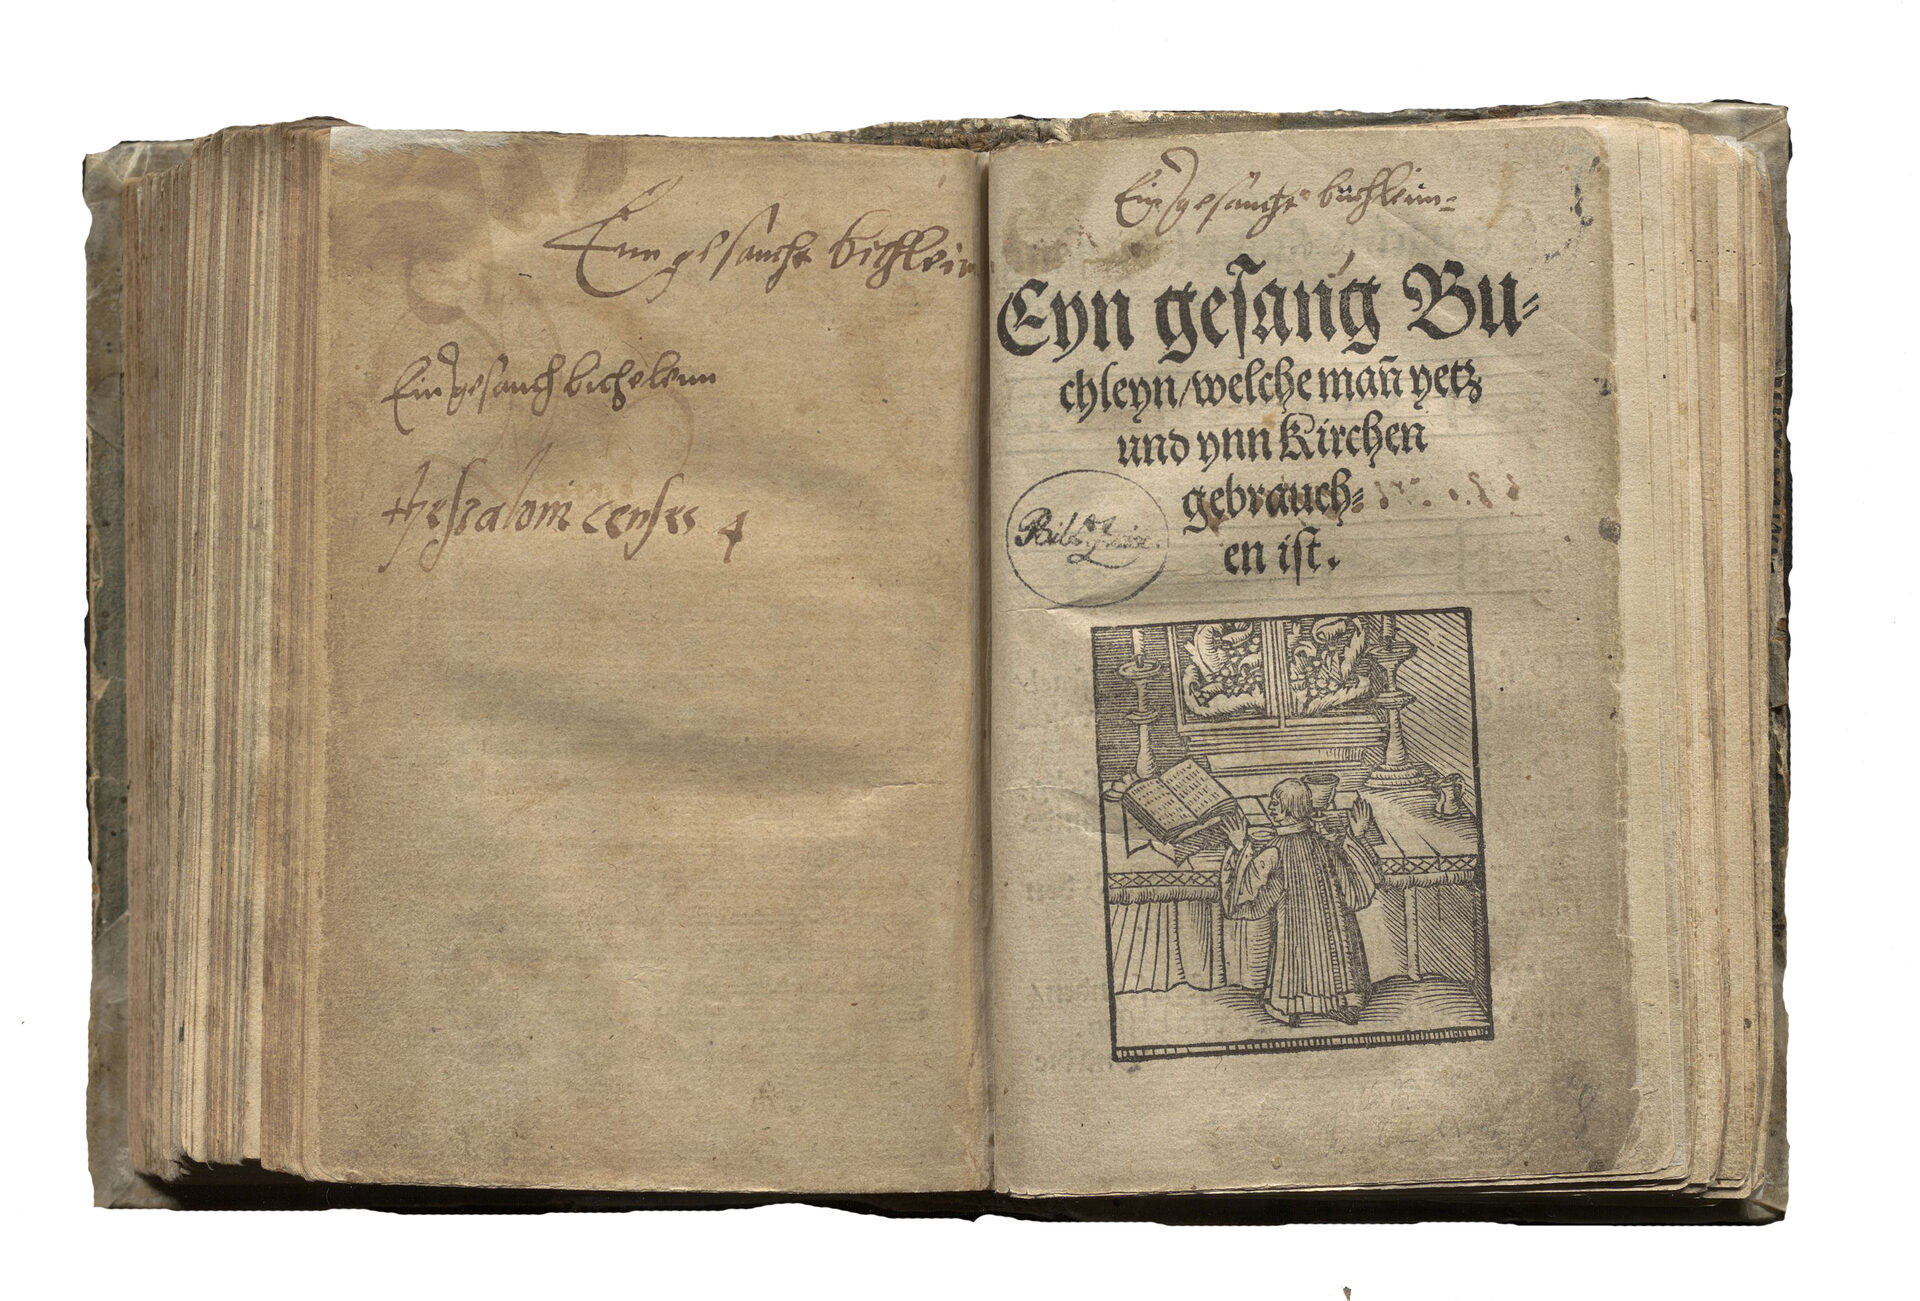 Ein gesanche bichlein
Ein gesanch bichelenn
thessalonicenses 4
Ein gesange büchlein-
Eyn gesang Bu-
chleyn/welche man̄ yetz
und ynn Kirchen
gebrauch-
en ist.